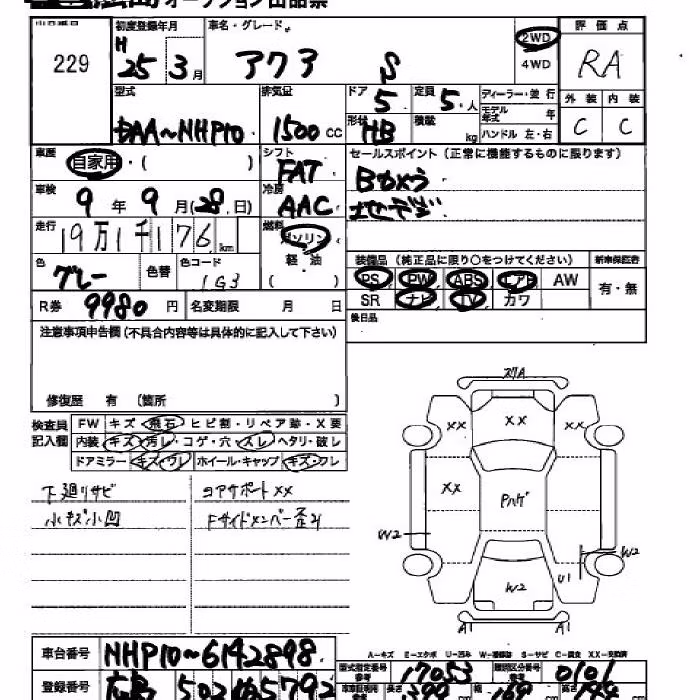 オークション出品票
229
初度登録年月
車名・グレード
H 25 3月
アクア S
2WD
4WD
評価点
RA
外装 内装
C C
型式
DAA~NHP10
排気量
1500 CC
ドア 5
形状 HB
定員 5 人
積載 kg
ディーラー・並行
モデル年式 年
ハンドル 左・右
車歴
自家用・( )
車検
9年 9月(28日)
走行
19万1千176 km
色 グレー
色替
色コード 1G3
シフト FAT
冷房 AAC
燃料
ガソリン
軽油
( )
セールスポイント(正常に機能するものに限ります)
Bカメラ
地デジ
装備品(純正品に限り○をつけてください)
新車保証書
PS PW ABS エアB AW
SR ナビ TV カワ
有・無
後日品
R券 9980 円
名変期限 月 日
注意事項申告欄(不具合内容等は具体的に記入して下さい)
修復歴 有(箇所 )
検査員記入欄
FW キズ・飛石・ヒビ割・リペア跡・X要
内装 キズ・汚レ・コゲ・穴・スレ・ヘタリ・破レ
ドアミラー キズ・ワレ ホイール・キャップ キズ・ワレ
下廻りサビ
小キズ小凹
コアサポートXX
Fサイドメンバー歪ミ
スリA
XX XX XX
XX
Pハゲ
W2
W2
U1
W2
A1 A1
A-キズ E-エクボ U-凹み W-補修跡 S-サビ C-腐食 XX-交換済
車台番号 NHP10~6142898
登録番号 広島 502 ぬ5792
型式指定番号 17053
類別区分番号 0101
長さ 399 cm
169 cm